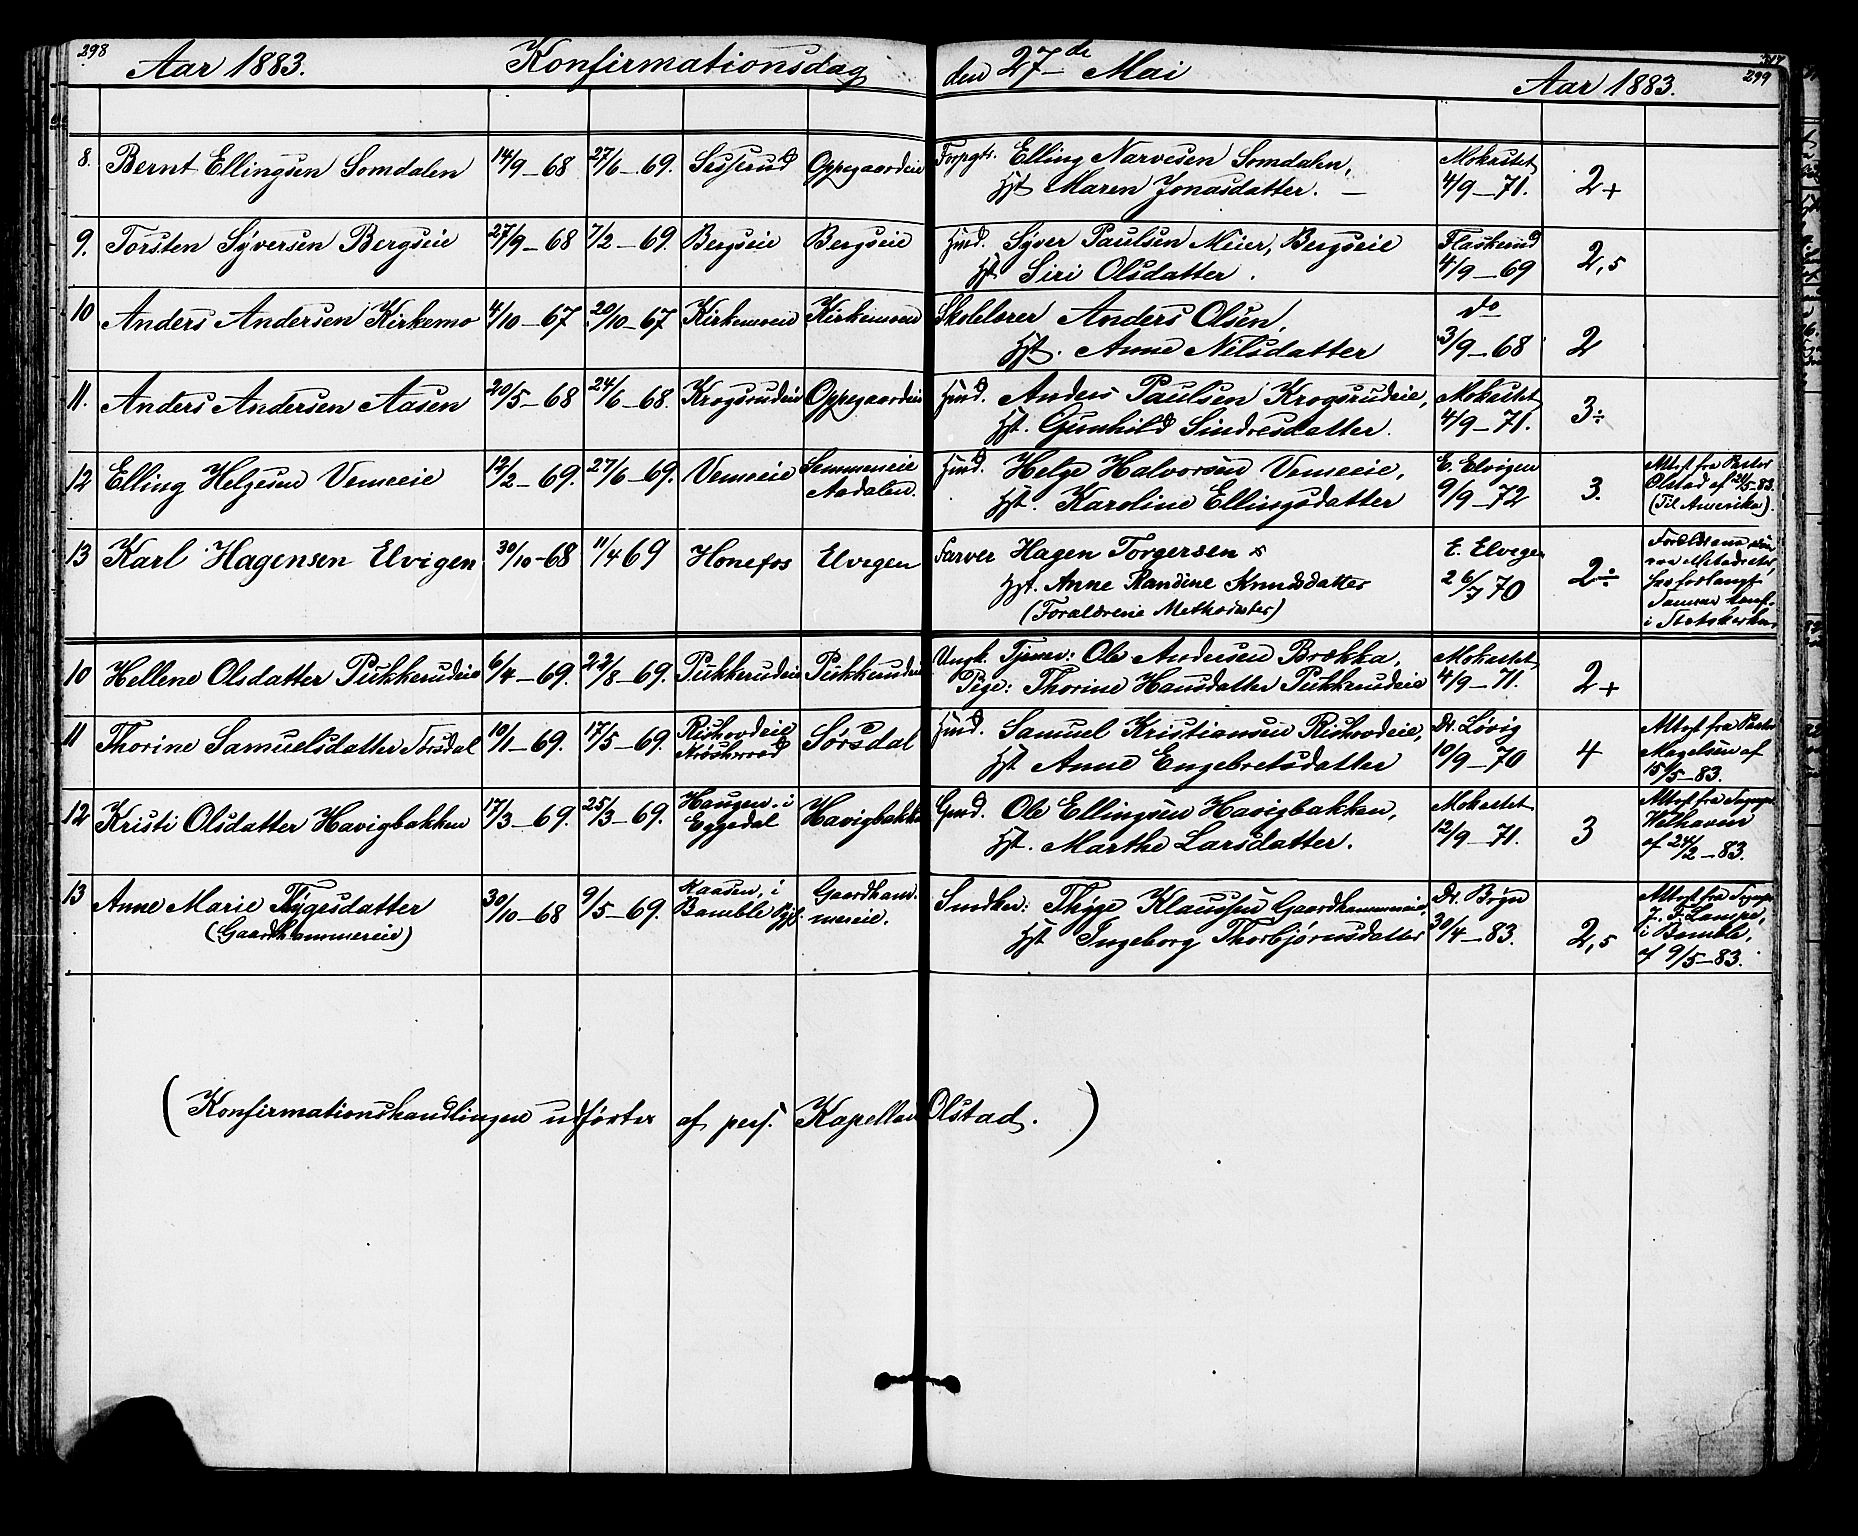 298
Aar 1883. Konfirmationsdag den 27de Mai Aar 1883. 299
8. Bernt Ellingsen Somdalen 14/9–68 27/6–69. Oppegaardeie Forpgtr. Elling Narvesen Somdalen, 4/9–71. 2+
Hst Maren Jonasdatter. –
9. Torsten Syversen Bergseie 27/9–68 7/2–69. Bergseie Bergseie Hmd. Syver Paulsen Meier, Bergseie Flaskerud 4/9–69 2,5
Hst Siri Olsdatter.
10 Anders Andersen Kirkemo 4/10–67 20/10–67 Kirkemoen Kirkemoen Skolelærer Anders Olsen, do 3/9–68 2
Hst. Anne Nilsdatter
11. Anders Andersen Aasen 20/5–68 24/6–68. Krogsrudeie Oppegaardeie Hmd. Anders Paulsen Krogsrudeie, 4/9–71. 3÷
Hst. Gunhild Sindresdatter.
12 Elling Helgesen Vemeeie 12/2–69. 27/6–69. Vemeeie Semmeneie Aadalen. Hmd. Helge Halvorsen Vemeeie, E. Elvigen 9/9–72 3. Attest fra Pastor Olstad af 21/5–83. (Til Amerika).
Hst. Karoline Ellingsdatter
13 Karl Hagensen Elvigen 30/10–68 11/4 69 Hønefos Elvigen Farver Hagen Torgersen & E. Elvigen 26/7 70 2÷ Forældrene har forlangt konf. i Statskirken
Hst. Anne Randine Knudsdatter
(Forældrene Methodister)
10 Hellene Olsdatter Pukkerudeie 6/4–69. 22/8–69. Pukkerudeie Pukkerudeie Ungk. Tjener: Ole Andersen Brækka, 4/9–71. 2+
Pige: Thorine Hansdatter Pukkerudeie
11 Thorine Samuelsdatter Sørsdal 10/1–69. 17/5–69. Riskovdeie Sørsdal Hmd. Samuel Kristiansen Riskovdeie, Dr. Løvig 10/9–70 4 Attest fra Pastor Magelsen af 15/5–83.
Hst Anne Engebretsdatter
12 Kristi Olsdatter Havigbakken 17/3–69. 25/3–69. Haugen i Eggedal Havigbakken Gmd. Ole Ellingsen Havigbakken, 12/9–71. 3 Attest fra Sognepr. Welhaven af 24/2–83.
Hst. Marthe Larsdatter.
13 Anne Marie Thygesdatter 30/10–68 9/5–69. Aaasen, i Bamble Gaardhammereie. Smdker: Thyge Klaussen Gaardhammereie, Dr. Bryn 30/4–83. 2,5 Attest fra Sognepr. J. F. Lampe, i Bamble, af 9/5–83.
(Gaardhammereie) Hst Ingeborg Thorbjørnsdatter
(Konfirmationshandlingen udførtes af pers. Kapellan Olstad.)